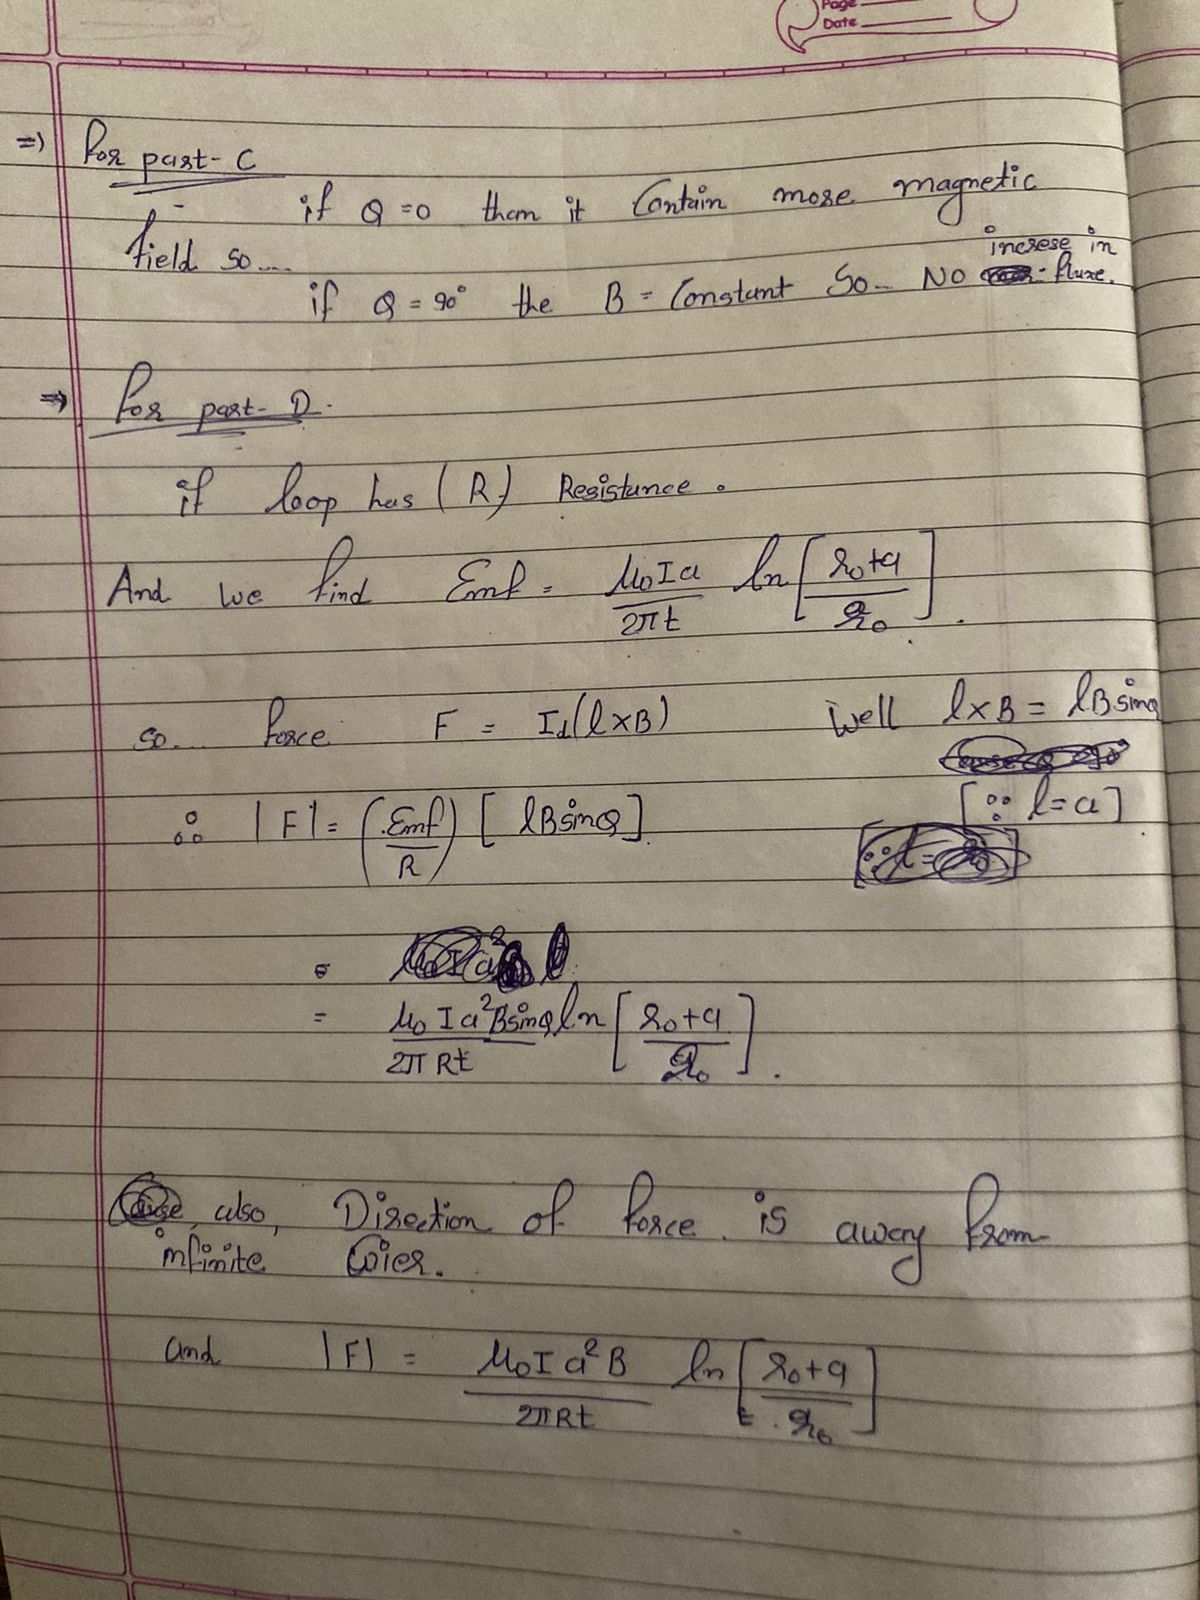 Page
Date
=) For part-C
if Q = 0 them it Contain more magnetic
field so....
if Q = 90° the B = Constant So... NO increse in fluxe.
=) For part-D.
if loop has (R) Resistance.
And we find Emf = μ₀Ia/2πt ln[r₀+a/r₀].
so.... force F = Id(l×B) Well l×B = lBsinQ
∴ |F| = (Emf/R) [lBsinQ] [∵ l=a]
=
= μ₀Ia²BsinQ/2πRt ln[r₀+a/r₀].
also, Direction of force is away from
infinite wier.
and |F| = μ₀Ia²B/2πRt ln[r₀+a/r₀]